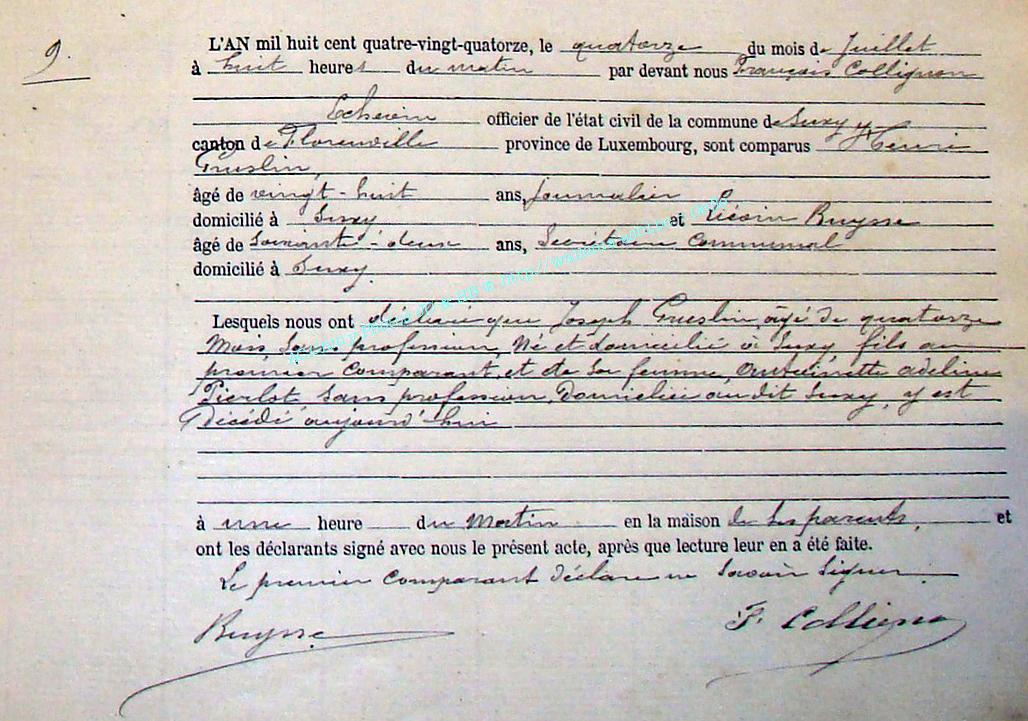 9.
L'AN mil huit cent quatre-vingt-quatorze, le quatorze du mois de Juillet
à huit heures du matin par devant nous François Collignon
Echevin officier de l'état civil de la commune de Suxy
canton de Florenville province de Luxembourg, sont comparus Henri
Gruslin,
âgé de vingt-huit ans, journalier
domicilié à Suxy et Buysse
âgé de Soixante-deux ans, Secrétaire Communal
domicilié à Suxy.
Lesquels nous ont déclaré que Joseph Gruslin, âgé de quatorze
Mois, Sans profession, Né et domicilié à Suxy fils au
premier Comparant, et de Sa femme, Antoinette adeline
Pierlot, Sans profession, Domiciliée au dit Suxy, y est
Décédé aujourd'hui
à une heure du Matin en la maison de Ses parents, et
ont les déclarants signé avec nous le présent acte, après que lecture leur en a été faite.
Le premier Comparant Déclare ne Savoir Signer.
Buysse F. Collignon